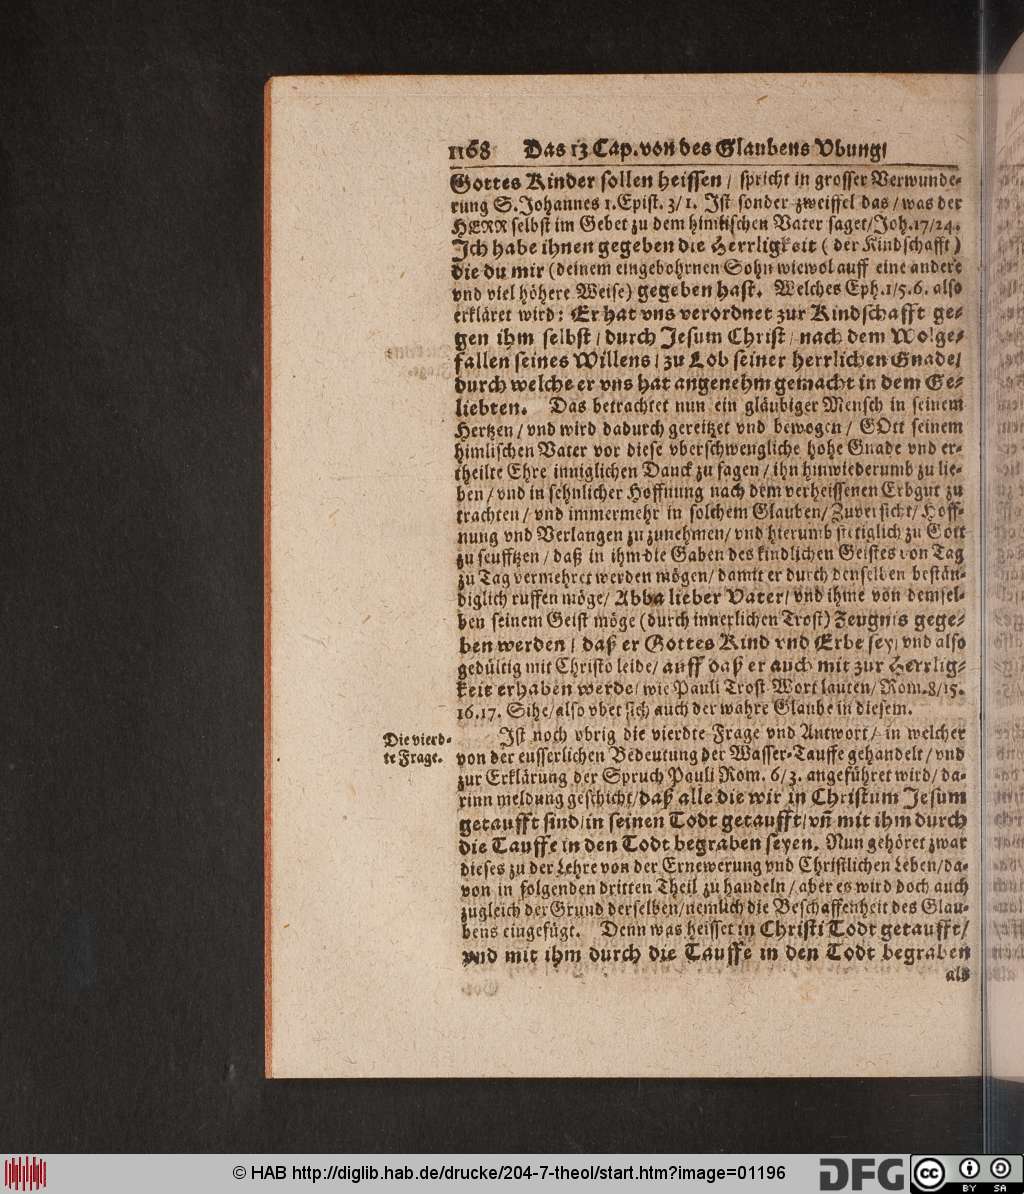 1168 Das 13 Cap. von des Glaubens Vbung/
Gottes Kinder sollen heissen / spricht in grosser Verwunde-
rung S. Johannes 1. Epist. 3/1. Ist sonder zweiffel das / was der
HERR selbst im Gebet zu dem himlischen Vater saget/Joh.17/24.
Ich habe ihnen gegeben die Herrligkeit ( der Kindschafft )
die du mir (deinem eingebohrnen Sohn wiewol auff eine andere
vnd viel höhere Weise) gegeben hast. Welches Eph.1/5.6. also
erkläret wird: Er hat vns verordnet zur Kindschafft ge-
gen ihm selbst / durch Jesum Christ / nach dem Wolge-
fallen seines Willens / zu Lob seiner herrlichen Gnade/
durch welche er vns hat angenehm gemacht in dem Ge-
liebten. Das betrachtet nun ein gläubiger Mensch in seinem
Hertzen / vnd wird dadurch gereitzet vnd bewogen / GOtt seinem
himlischen Vater vor diese vberschwengliche hohe Gnade vnd er-
theilte Ehre inniglichen Danck zu sagen / ihn hinwiederumb zu lie-
ben / vnd in sehnlicher Hoffnung nach dem verheissenen Erbgut zu
trachten / vnd immermehr in solchem Glauben/ Zuversicht/ Hoff-
nung vnd Verlangen zu zunehmen/ vnd hierumb stetiglich zu Gott
zu seufftzen / daß in ihm die Gaben des kindlichen Geistes von Tag
zu Tag vermehret werden mögen/ damit er durch denselben bestän-
diglich ruffen möge/ Abba lieber Vater/ vnd ihme von demsel-
ben seinem Geist möge (durch innerlichen Trost) Zeugnis gege-
ben werden / daß er Gottes Kind vnd Erbe sey/ vnd also
gedültig mit Christo leide/ auff daß er auch mit zur Herrlig-
keit erhaben werde/ wie Pauli Trost Wort lauten/ Rom.8/15.
16.17. Sihe/also vbet sich auch der wahre Glaube in diesem.
Die vierd-
te Frage.
Ist noch vbrig die vierdte Frage vnd Antwort/ in welcher
von der eusserlichen Bedeutung der Wasser-Tauffe gehandelt / vnd
zur Erklärung der Spruch Pauli Rom. 6/3. angeführet wird/ da-
rinn meldung geschicht/daß alle die wir in Christum Jesum
getaufft sind/in seinen Todt getaufft/vñ mit ihm durch
die Tauffe in den Todt begraben seyen. Nun gehöret zwar
dieses zu der Lehre von der Ernewerung vnd Christlichen Leben/da-
von in folgenden dritten Theil zu handeln / aber es wird doch auch
zugleich der Grund derselben/nemlich die Beschaffenheit des Glau-
bens eingefügt. Denn was heisset in Christi Todt getaufft/
vnd mit ihm durch die Tauffe in den Todt begraben
als
© HAB http://diglib.hab.de/drucke/204-7-theol/start.htm?image=01196
DFG
cc
BY SA